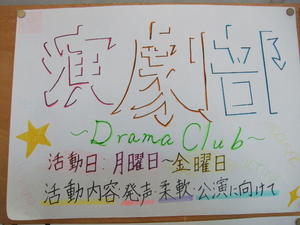 演劇部
～Drama Club～
活動日:月曜日～金曜日
活動内容:発声・柔軟・公演に向けて